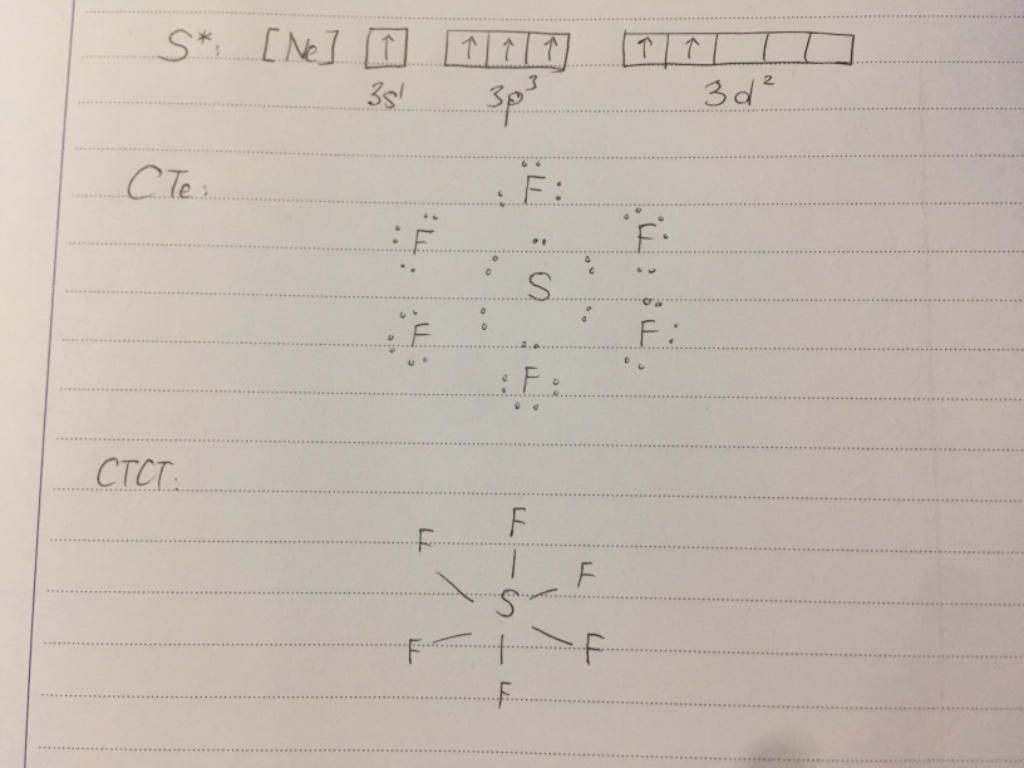 S*: [Ne] ↑ ↑ ↑ ↑ ↑ ↑
3s¹ 3p³ 3d²
CTe:
F
F F
S
F F
F
CTCT:
F
F
F
S
F F
F